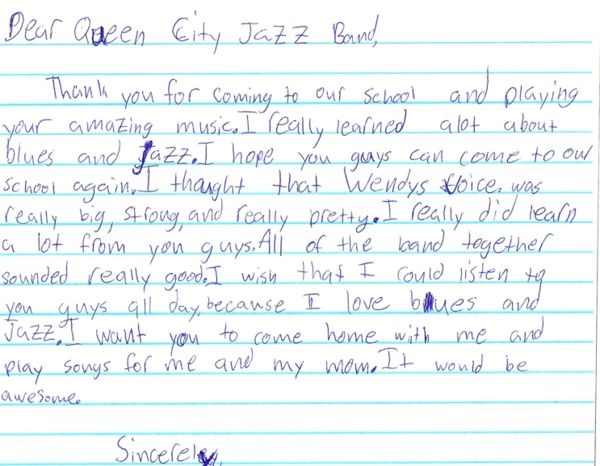 Dear Queen City Jazz Band,
Thank you for coming to our school and playing
your amazing music. I really learned alot about
blues and Jazz. I hope you guys can come to our
school again. I thought that Wendys Voice, was
really big, strong, and really pretty. I really did learn
a lot from you guys. All of the band together
sounded really good. I wish that I could listen to
you guys all day, because I love blues and
Jazz. I want you to come home with me and
play songs for me and my mom. It would be
awesome.
Sincerely,